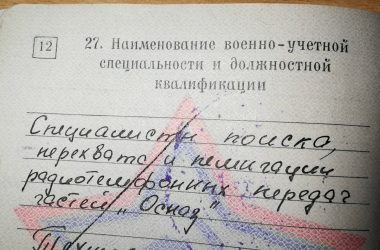 12
27. Наименование военно-учетной
специальности и должностной
квалификации
Специалисты поиска,
перехвата и пеленгации
радиотелефонных передач
частей „Осназ"